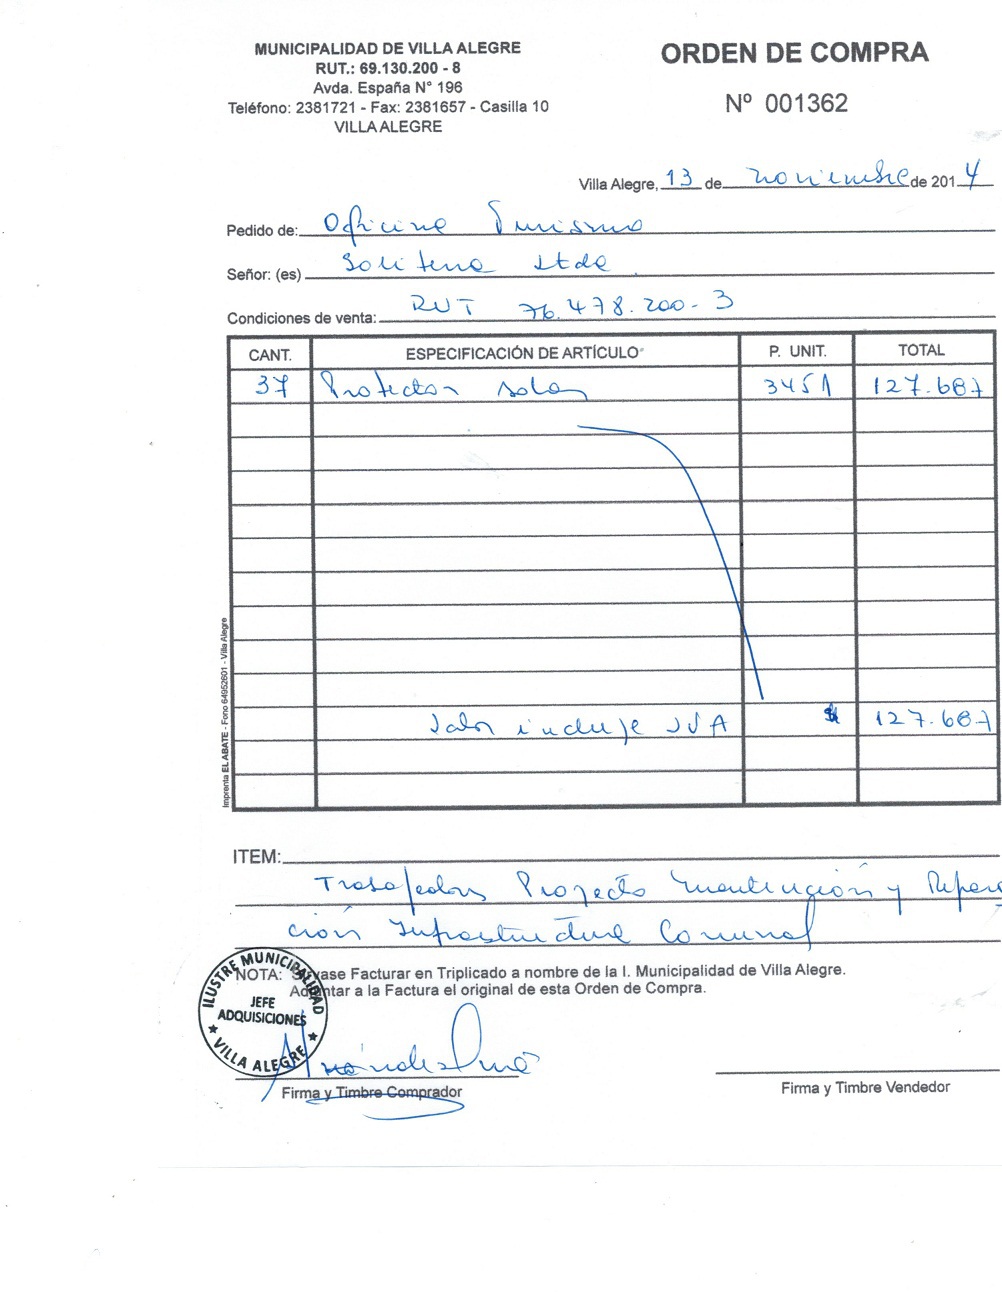 MUNICIPALIDAD DE VILLA ALEGRE
RUT.: 69.130.200 - 8
Avda. España N° 196
Teléfono: 2381721 - Fax: 2381657 - Casilla 10
VILLA ALEGRE
ORDEN DE COMPRA
Nº 001362
Villa Alegre, 13 de noviembre de 2014
Pedido de: Oficina Turismo
Señor: (es) Ltda
Condiciones de venta: RUT 76.478.200-3
CANT. ESPECIFICACIÓN DE ARTÍCULO P. UNIT. TOTAL
37 Protector solar 3451 127.687
Valor incluye IVA $ 127.687
Imprenta EL ABATE - Fono 64952601 - Villa Alegre
ITEM:
Trabajadores Proyecto Mantención y Repara
ción Infraestructura Comunal
NOTA: Sírvase Facturar en Triplicado a nombre de la I. Municipalidad de Villa Alegre.
Adjuntar a la Factura el original de esta Orden de Compra.
ILUSTRE MUNICIPALIDAD
JEFE
ADQUISICIONES
VILLA ALEGRE
Firma y Timbre Comprador
Firma y Timbre Vendedor